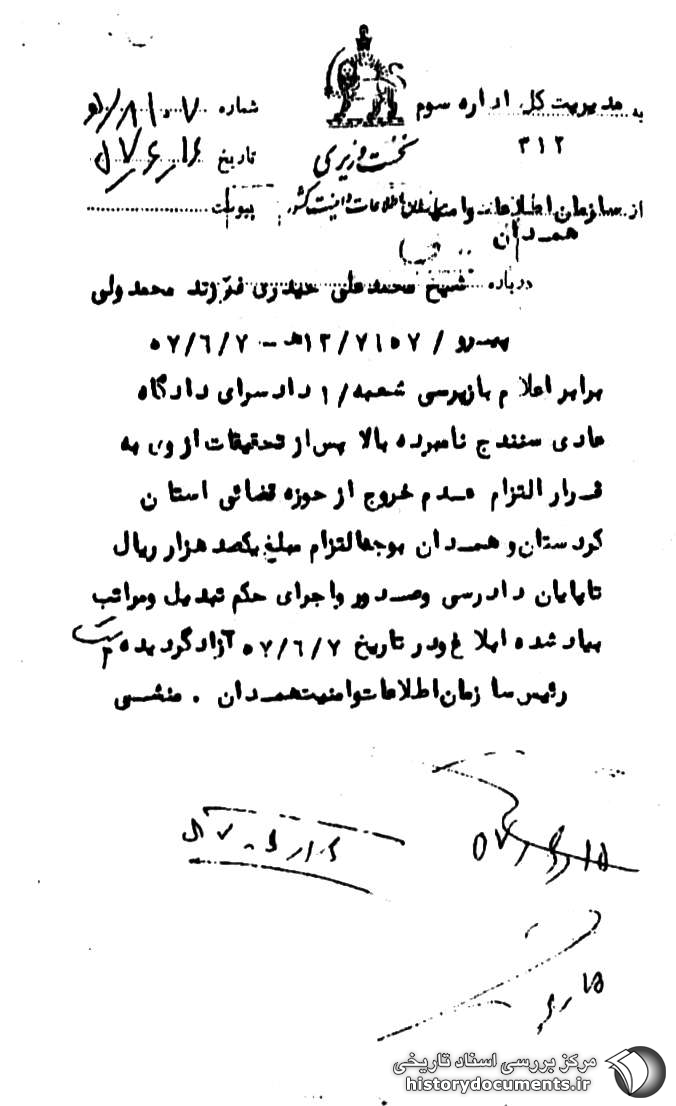 به مدیریت کل اداره سوم
شماره ۸۱۰۷/ه
نخست وزیری
۳۱۲
تاریخ ۵۷/۶/۱۴
از سازمان اطلاعات و امنیت کشور
پیوست
همدان
درباره شیخ محمدعلی حیدری فرزند محمدولی
پیرو / ۱۲/۷۱۵۷ه - ۵۷/۶/۷
برابر اعلام بازپرسی شعبه/۱ دادسرای دادگاه
عادی سنندج نامبرده بالا پس از تحقیقات از وی به
قرار التزام عدم خروج از حوزه قضائی استان
کردستان و همدان بوجه التزام مبلغ یکصد هزار ریال
تا پایان دادرسی و صدور واجرای حکم تبدیل و مراتب
بیاد شده ابلاغ ودر تاریخ ۵۷/۶/۷ آزاد گردیده
رئیس سازمان اطلاعات وامنیت همدان . منشی
۵۷/۶/۱۵
۶/۱۵
مرکز بررسی اسناد تاریخی
historydocuments.ir